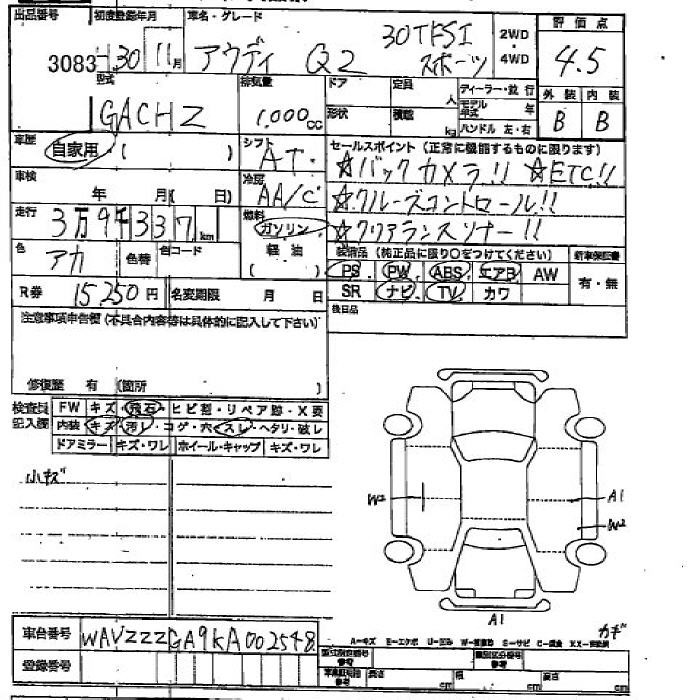 出品番号 初度登録年月 車名・グレード 評価点
3083 30年 11月 アウディ Q2 30TFSI スポーツ 2WD・4WD 4.5
型式 排気量 ドア 定員 人 ディーラー・並行 外装 内装
GACHZ 1.000cc 形状 積載 kg モデル年式 年 ハンドル 左・右 B B
車歴 自家用・( ) シフト AT セールスポイント (正常に機能するものに限ります)
☆バックカメラ!! ☆ETC!!
車検 年 月( 日) 冷房 AA/C ☆クルーズコントロール!!
走行 3万9千337km 燃料 ガソリン ☆クリアランスソナー!!
色 アカ 色替 色コード 軽油 装備品 (純正品に限り○をつけてください) 新車保証書
PS PW ABS エアB AW 有・無
R券 15250円 名変期限 月 日 SR ナビ TV カワ
注意事項申告欄 (不具合内容等は具体的に記入して下さい) 後日品
修復歴 有 (箇所 )
検査員記入欄 FW キズ・飛石・ヒビ割・リペア跡・X要
内装 キズ・汚レ・コゲ・穴・スレ・ヘタリ・破レ
ドアミラー キズ・ワレ ホイール・キャップ キズ・ワレ
小キズ
W2 A1
W2
A1
カギ
車台番号 WAVZZZGA9KA002548
A-キズ E-エクボ U-凹み W-補修跡 S-サビ C-腐食 XX-交換済
登録番号 型式指定番号 類別区分番号
長さ cm 幅 cm 高さ cm